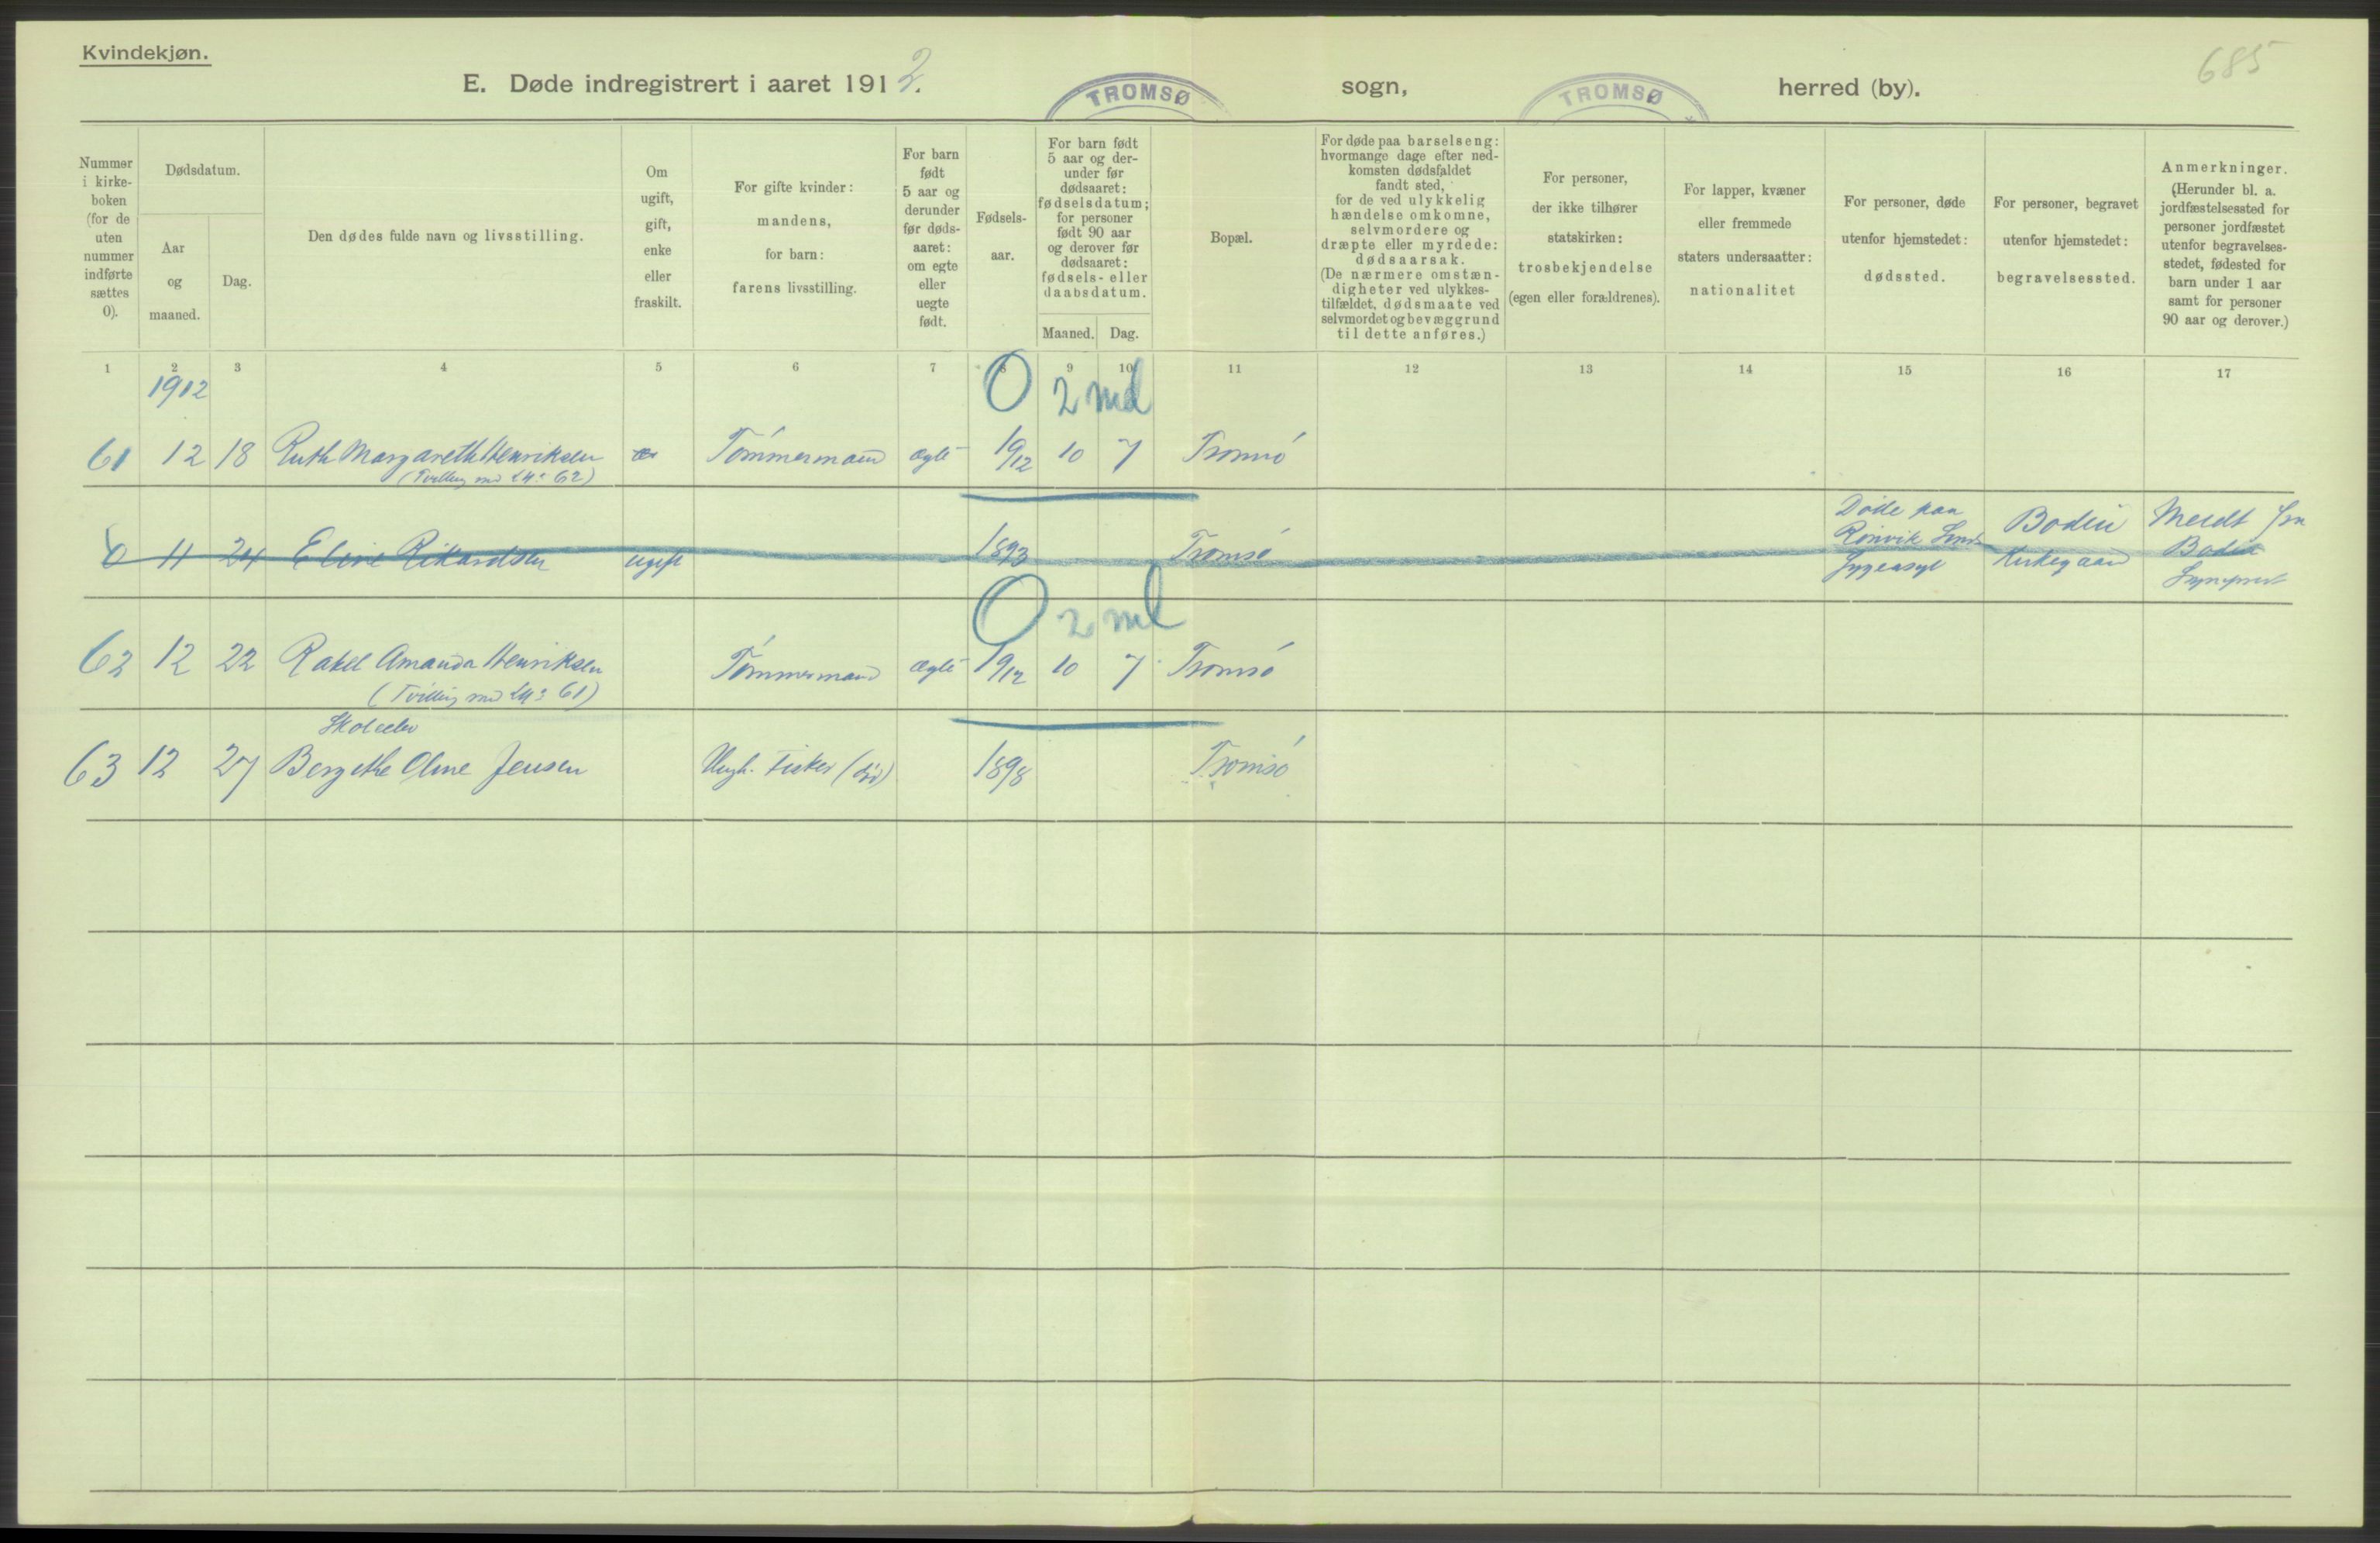 Kvindekjøn.
685
E. Døde indregistrert i aaret 1912. TROMSØ sogn, TROMSØ herred (by).
Nummer i kirke-boken (for de uten nummer indførte sættes 0).
Dødsdatum.
Aar og maaned.
Dag.
Den dødes fulde navn og livsstilling.
Om ugift, gift, enke eller fraskilt.
For gifte kvinder: mandens, for barn: farens livsstilling.
For barn født 5 aar og derunder før døds-aaret: om egte eller uegte født.
Fødsels-aar.
For barn født 5 aar og der-under før dødsaaret: fødselsdatum; for personer født 90 aar og derover før dødsaaret: fødsels- eller daabsdatum.
Maaned. Dag.
Bopæl.
For døde paa barselseng: hvormange dage efter ned-komsten dødsfaldet fandt sted, for de ved ulykkelig hændelse omkomne, selvmordere og dræpte eller myrdede: dødsaarsak. (De nærmere omstæn-digheter ved ulykkes-tilfældet, dødsmaate ved selvmordet og bevæggrund til dette anføres.)
For personer, der ikke tilhører statskirken: trosbekjendelse (egen eller forældrenes).
For lapper, kvæner eller fremmede staters undersaatter: nationalitet
For personer, døde utenfor hjemstedet: dødssted.
For personer, begravet utenfor hjemstedet: begravelsessted.
Anmerkninger. (Herunder bl. a. jordfæstelsessted for personer jordfæstet utenfor begravelses-stedet, fødested for barn under 1 aar samt for personer 90 aar og derover.)
1 2 3 4 5 6 7 8 9 10 11 12 13 14 15 16 17
1912
0 2 md
61 12 18 Ruth Margareth Henriksen Tömmermand ægte 1912 10 7 Tromsö
(Tvilling md 62)
0 11 24 Eline Rikardsen ugift 1893 Tromsö Döde paa Rönvik Sindssygeasyl Bodin Kirkegaard Meldt fra Bodin Sogneprest
0 2 md
62 12 22 Rakel Amanda Henriksen Tömmermand ægte 1912 10 7 Tromsö
(Tvilling md 61)
Skoleelev
63 12 27 Bergethe Oline Jensen Ungk. Fisker (död) 1898 Tromsö